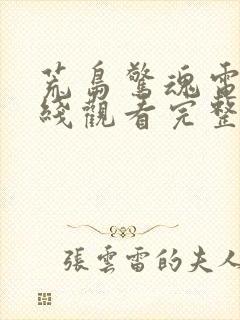 荒島驚魂電
綫觀看完整
張雲雷的夫人